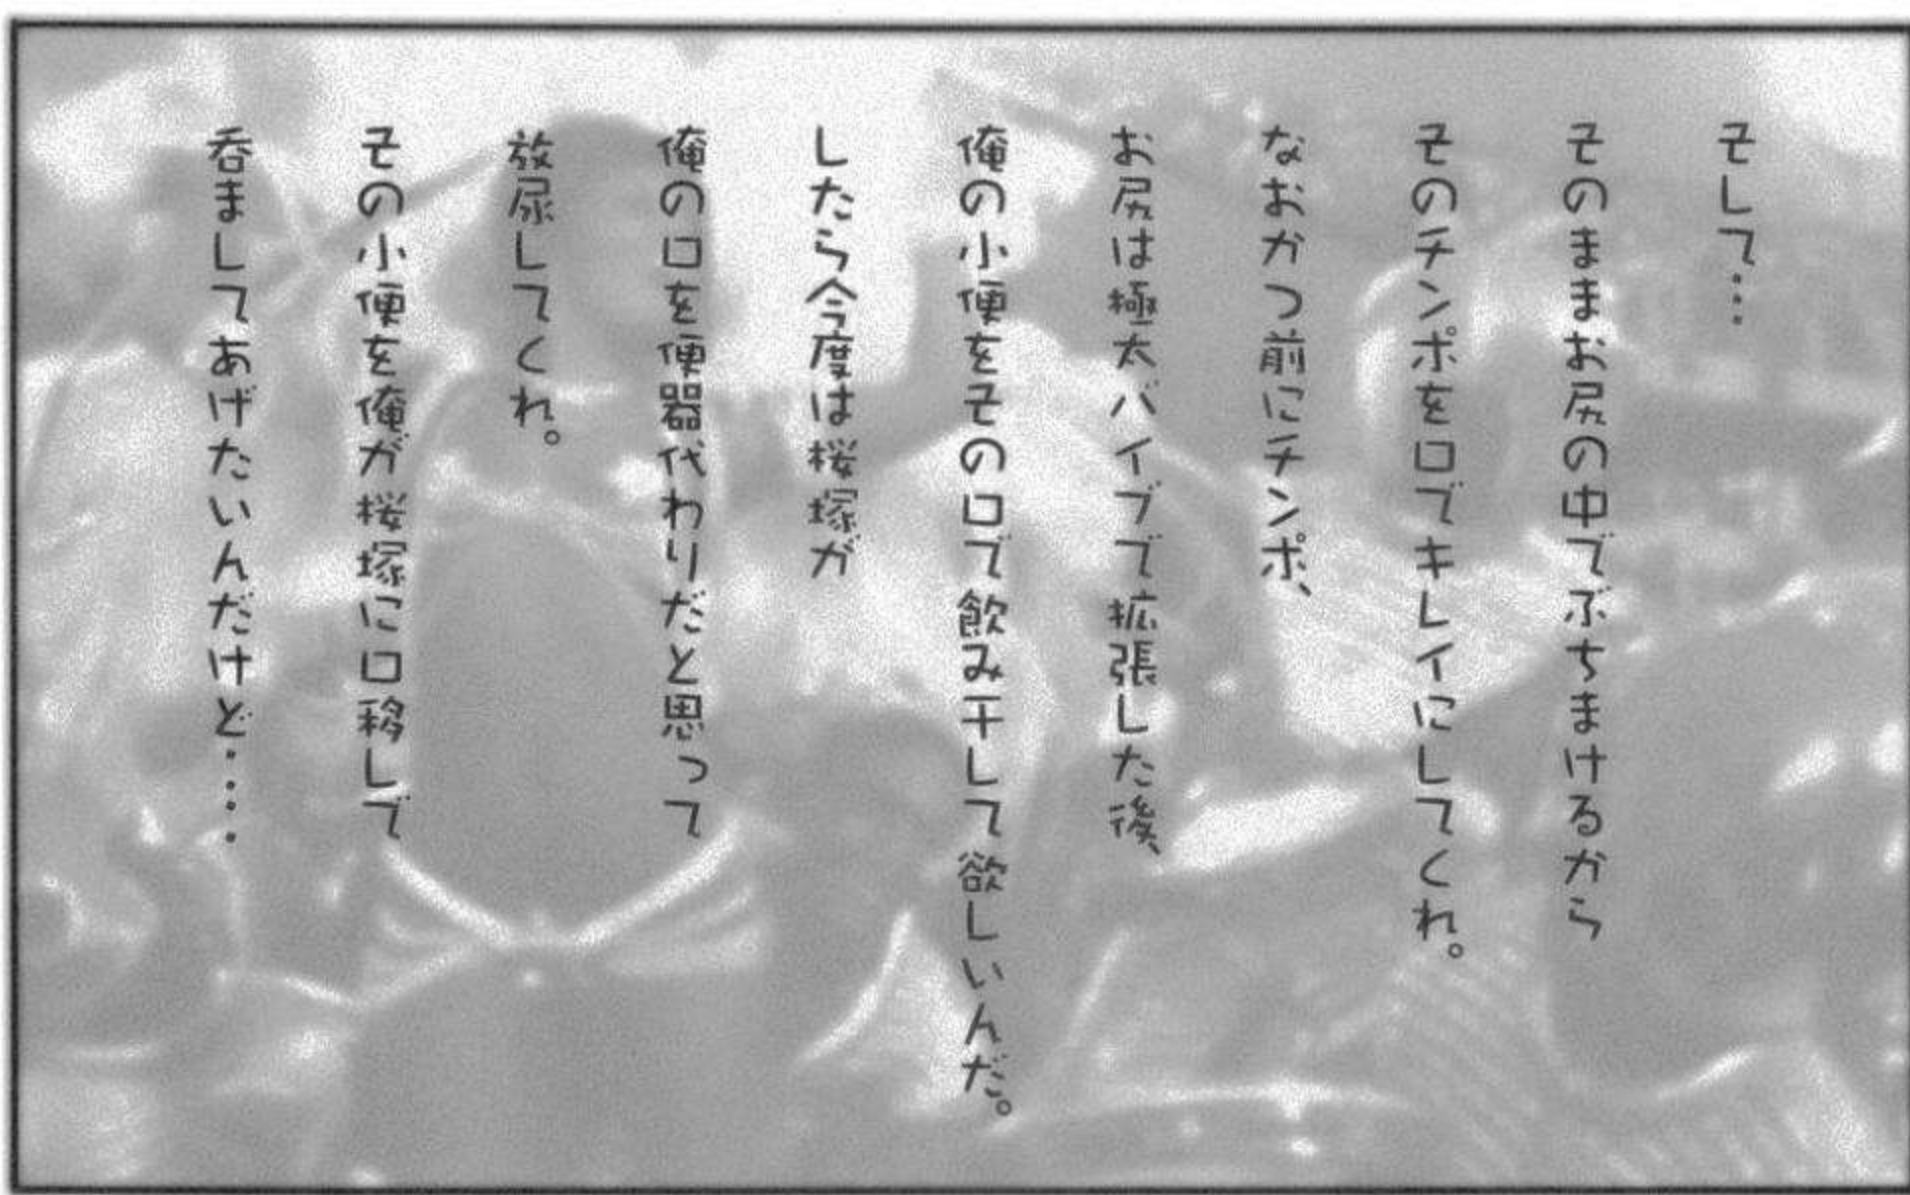 そして…
そのままお尻の中でぶちまけるから
そのチンポを口でキレイにしてくれ。
なおかつ前にチンポ、
お尻は極太バイブで拡張した後、
俺の小便をその口で飲み干して欲しいんだ。
したら今度は桜塚が
俺の口を便器代わりだと思って
放尿してくれ。
その小便を俺が桜塚に口移しで
呑ましてあげたいんだけど‥‥